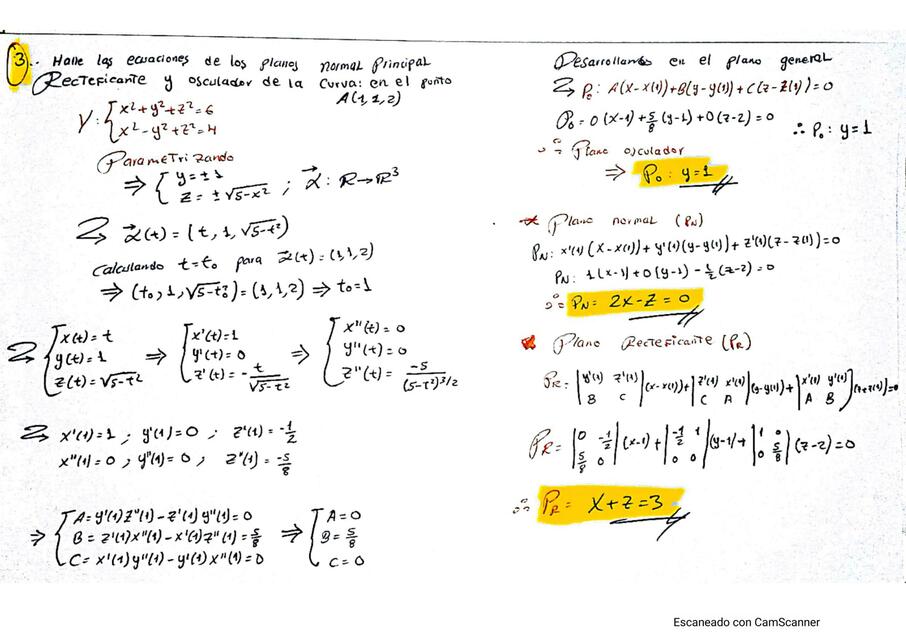 3.. Halle las ecuaciones de los planos normal Principal
Recteficante y osculador de la curva: en el punto
A(1,1,2)
γ: { x²+y²+z²=6
x²-y²+z²=4
Parametrizando
⇒ { y=±1
z=±√5-x² ; α⃗: R→R³
⇒ α⃗(t)=(t,1,√5-t²)
Calculando t=t₀ para α⃗(t)=(1,1,2)
⇒ (t₀,1,√5-t₀²)=(1,1,2) ⇒ t₀=1
⇒ { x(t)=t
y(t)=1
z(t)=√5-t²
⇒ { x'(t)=1
y'(t)=0
z'(t)=-t/√5-t²
⇒ { x''(t)=0
y''(t)=0
z''(t)=-5/(5-t²)^3/2
⇒ x'(1)=1 ; y'(1)=0 ; z'(1)=-1/2
x''(1)=0 ; y''(1)=0 ; z''(1)=-5/8
⇒ { A=y'(1)z''(1)-z'(1)y''(1)=0
B=z'(1)x''(1)-x'(1)z''(1)=5/8
C=x'(1)y''(1)-y'(1)x''(1)=0
⇒ { A=0
B=5/8
C=0
Desarrollando en el plano general
⇒ P₀: A(x-x(1))+B(y-y(1))+C(z-z(1))=0
P₀=0(x-1)+5/8(y-1)+0(z-2)=0
∴ P₀: y=1
∴ Plano osculador
⇒ P₀: y=1
* Plano normal (PN)
PN: x'(1)(x-x(1))+y'(1)(y-y(1))+z'(1)(z-z(1))=0
PN: 1(x-1)+0(y-1)-1/2(z-2)=0
∴ PN: 2x-z=0
* Plano Recteficante (PR)
PR= |y'(1) z'(1); B C|(x-x(1))+|z'(1) x'(1); C A|(y-y(1))+|x'(1) y'(1); A B|(z+z(1))=0
PR= |0 -1/2; 5/8 0|(x-1)+|-1/2 1; 0 0|(y-1)+|1 0; 0 5/8|(z-2)=0
∴ PR= x+z=3
Escaneado con CamScanner